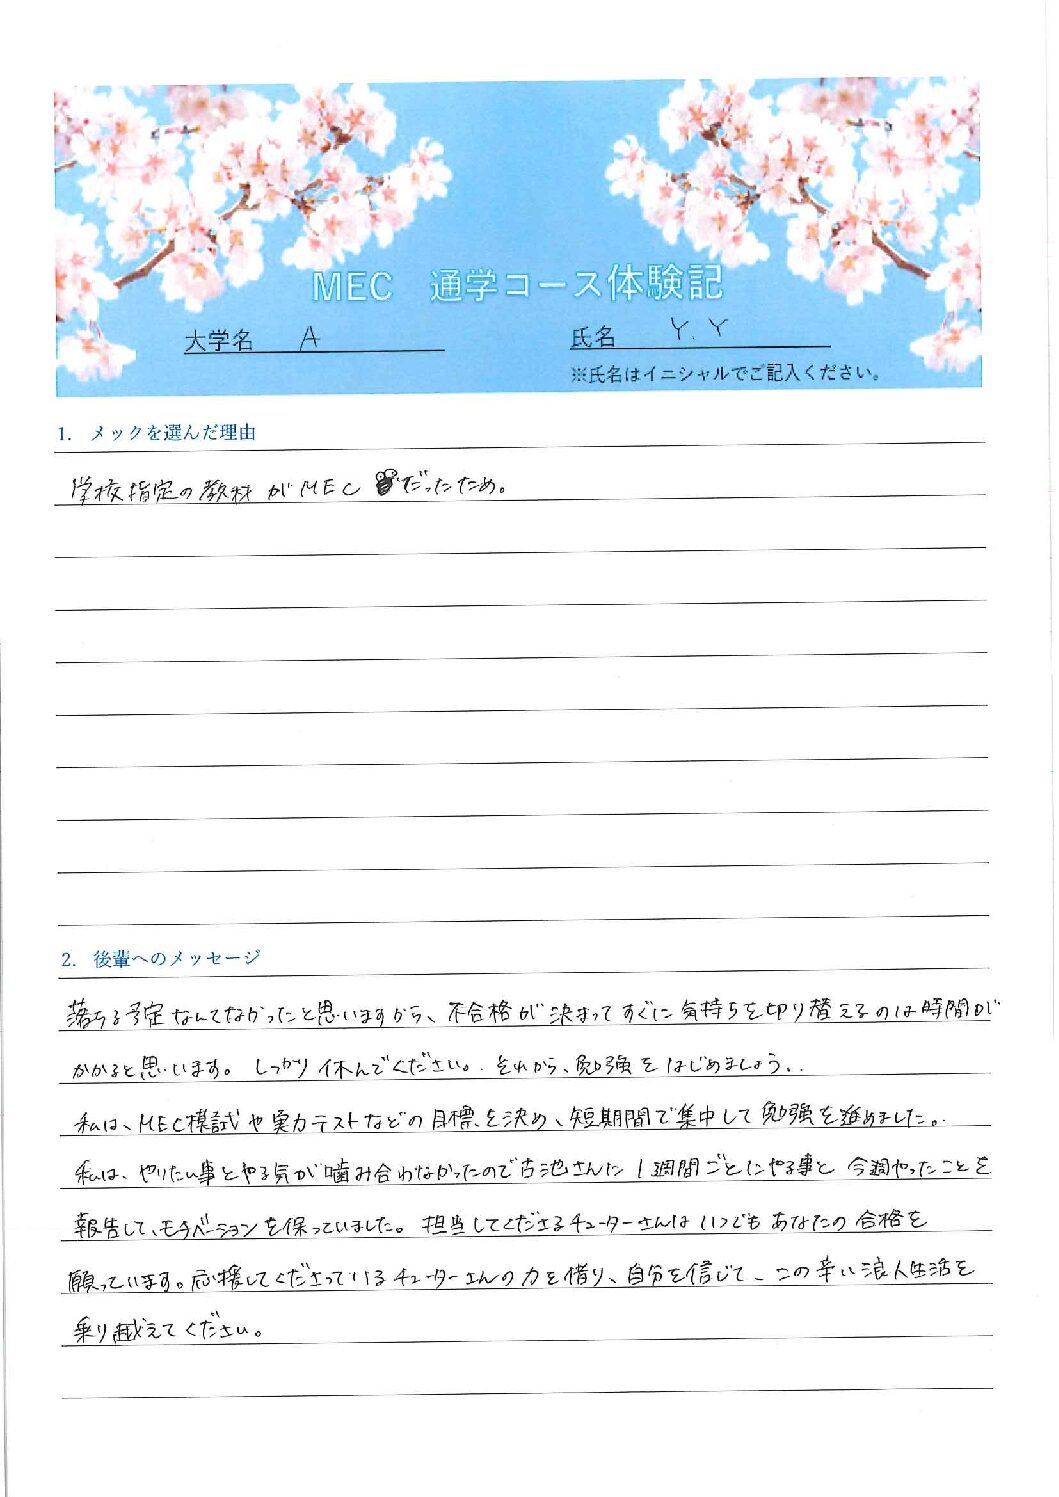 MEC 通学コース体験記
大学名 A 氏名 Y.Y
※氏名はイニシャルでご記入ください。
1. メックを選んだ理由
学校指定の教材がMECだったため。
2. 後輩へのメッセージ
落ちる予定なんてなかったと思いますから、不合格が決まってすぐに気持ちを切り替えるのは時間が
かかると思います。しっかり休んでください。それから、勉強をはじめましょう。
私は、MEC模試や実力テストなどの目標を決め、短期間で集中して勉強を進めました。
私は、やりたい事とやる気が噛み合わなかったので古池さんに1週間ごとにやる事と今週やったことを
報告して、モチベーションを保っていました。担当してくださるチューターさんはいつでもあなたの合格を
願っています。応援してくださっているチューターさんの力を借り、自分を信じて、この辛い浪人生活を
乗り越えてください。